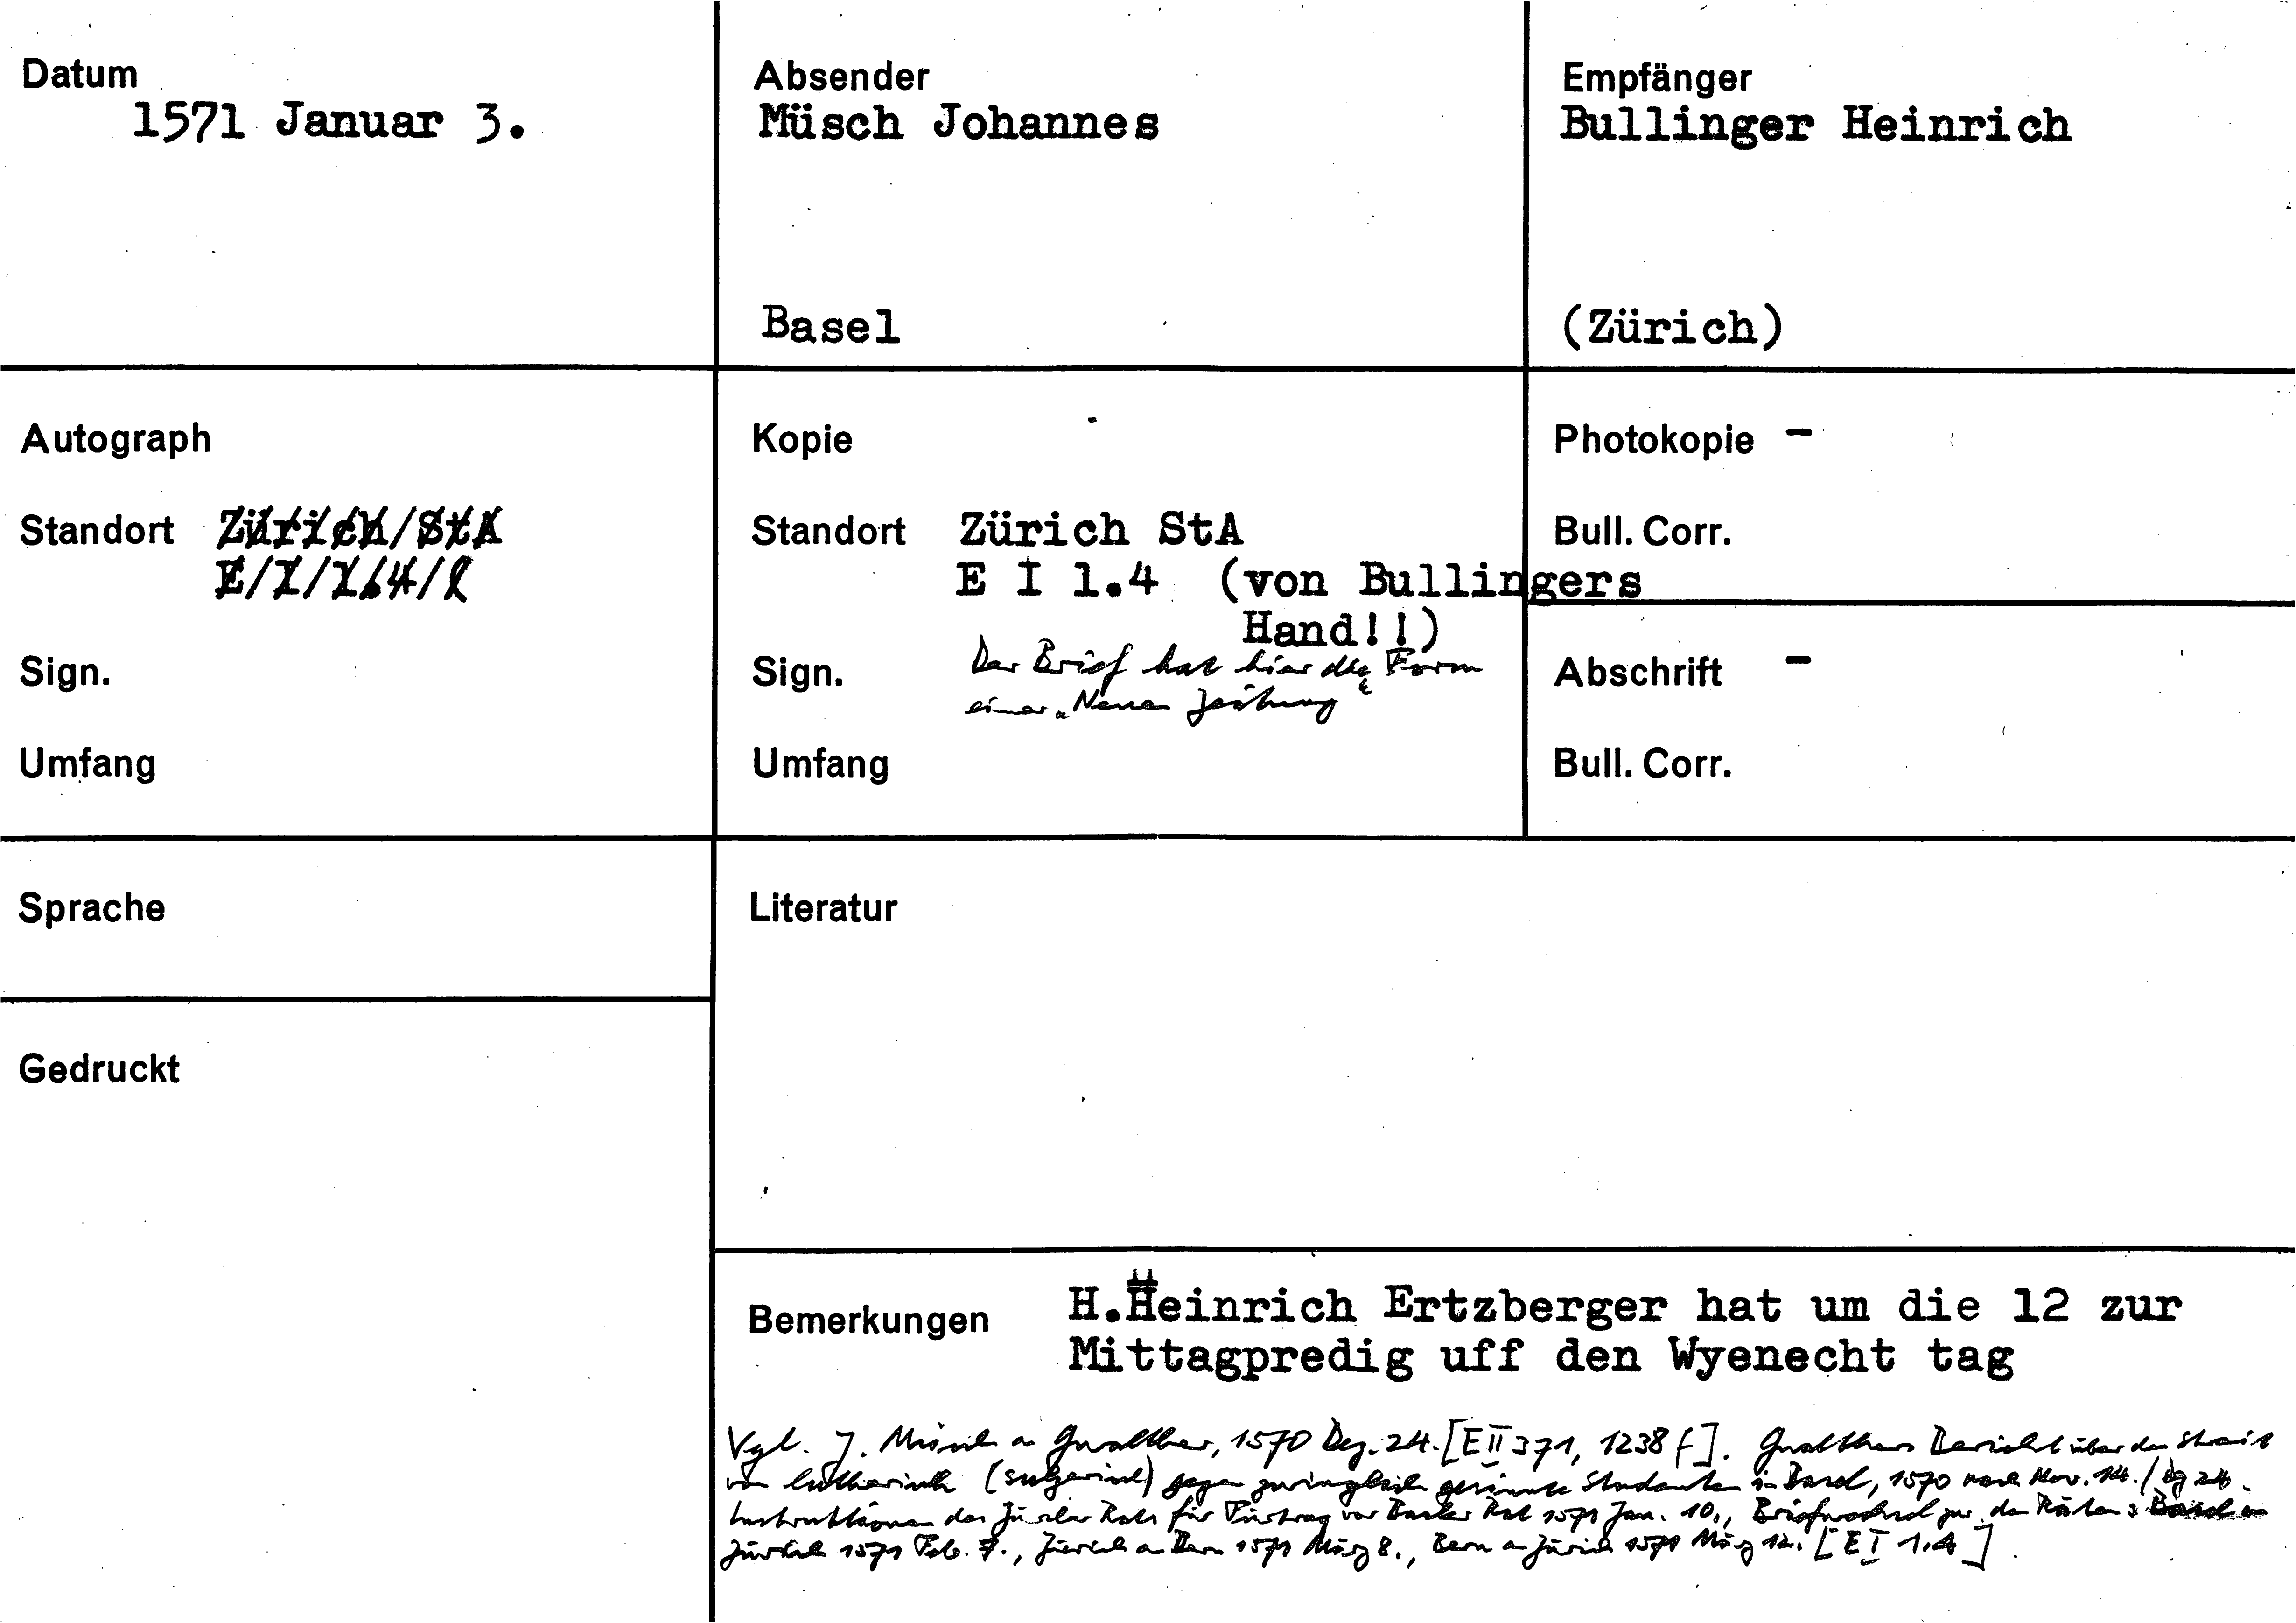 Datum
1571 Januar 3.
Absender
Müsch Johannes
Basel
Empfänger
Bullinger Heinrich
(Zürich)
Autograph
Standort Zürich/StA
E/I/1.4/
Sign.
Umfang
Kopie
Standort Zürich StA
E I 1.4 (von Bullingers
Hand!!)
Sign. Der Brief hat hier die Form
einer „Neuen Zeitung“
Umfang
Photokopie -
Bull. Corr.
Abschrift -
Bull. Corr.
Sprache
Gedruckt
Literatur
Bemerkungen H.Heinrich Ertzberger hat um die 12 zur
Mittagpredig uff den Wyenecht tag
Vgl. J. Müsch an Gwalther, 1570 Dez. 24. [E II 371, 1238 f]. Gwalthers Bericht über den Streit
von lutherisch (sulzerisch) gegen zwinglisch gesinnte Studenten in Basel, 1570 nach Nov. 14. / 24.
Instruktionen des Zürcher Rats für Fürtrag vor Basler Rat 1571 Jan. 10., Briefwechsel zw. den Räten:
Zürich 1571 Feb. 7., Zürich an Bern 1571 März 8., Bern an Zürich 1571 März 12. [E I 1.4]